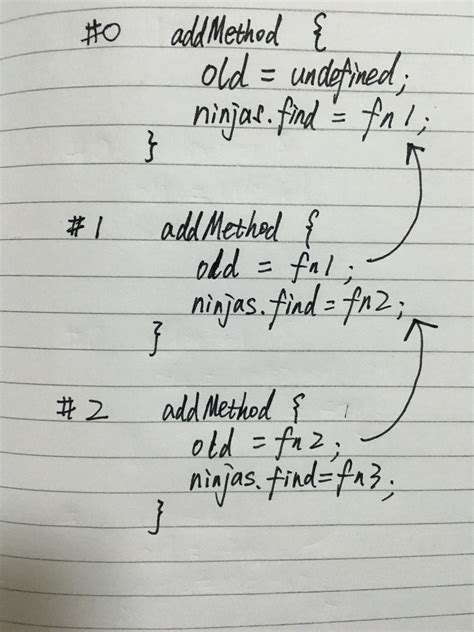 #0 addMethod {
old = undefined;
ninjas.find = fn1;
}
#1 addMethod {
old = fn1;
ninjas.find = fn2;
}
#2 addMethod {
old = fn2;
ninjas.find=fn3;
}